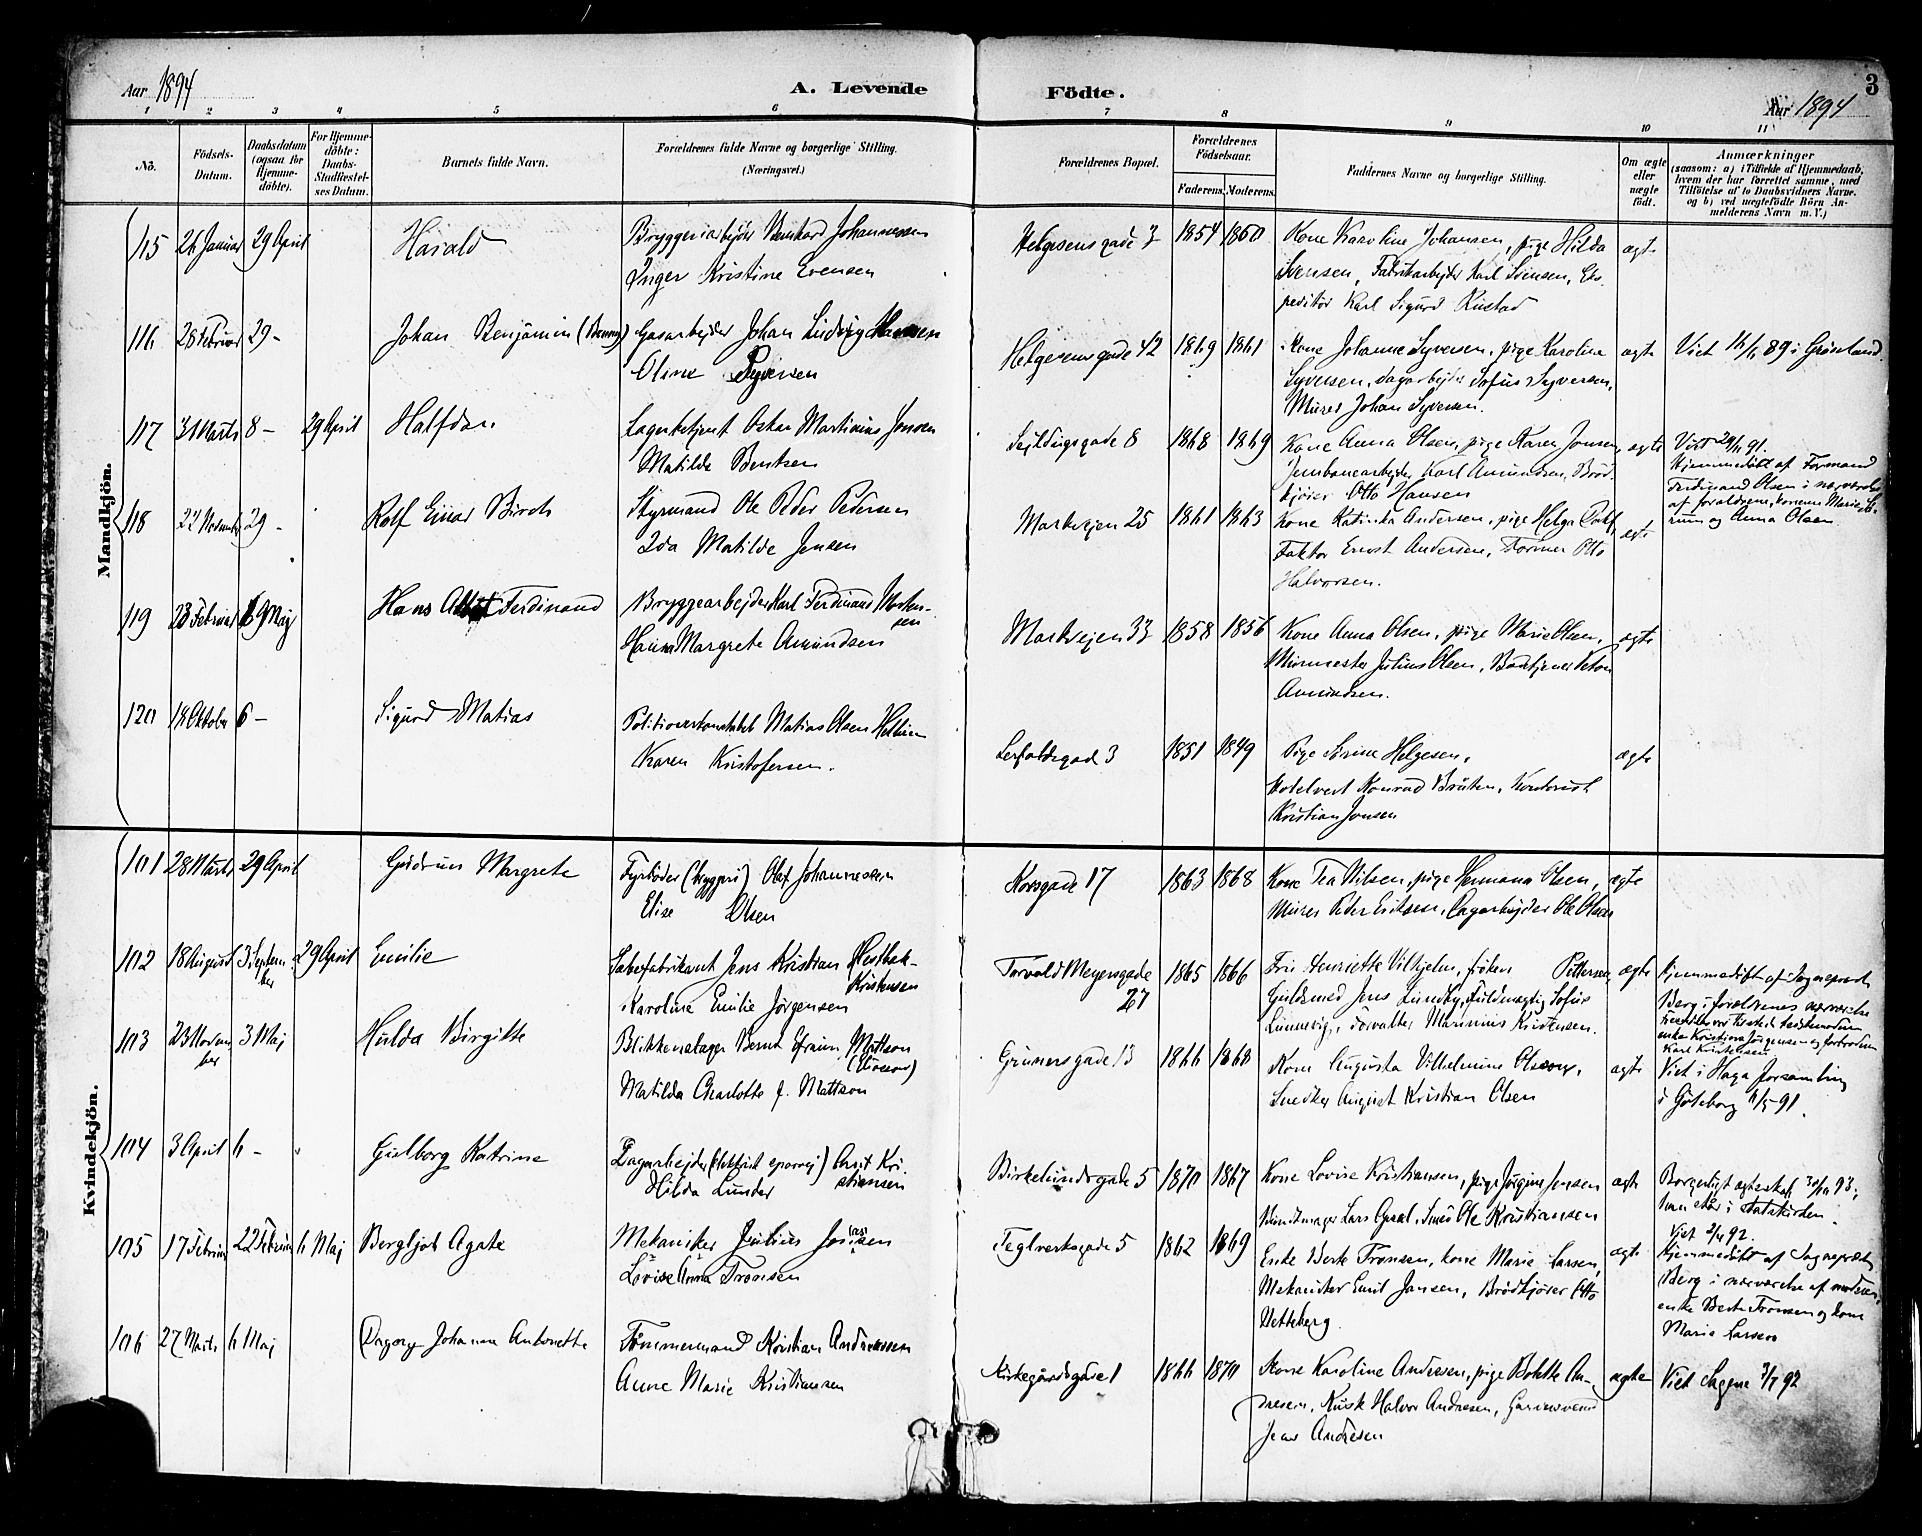 Aar 1894
A. Levende
Födte.
3
Aar 1894
1 2 3 4 5 6 7 8 9 10 11
No.
Födsels-
Datum.
Daabsdatum
(ogsaa for
Hjemme-
döbte).
For Hjemme-
döbte:
Daabs-
Stadfæstel-
ses Datum.
Barnets fulde Navn.
Forældrenes fulde Navne og borgerlige Stilling.
(Næringsvei.)
Forældrenes Bopæl.
Forældrenes
Födselsaar.
Faderens. Moderens.
Faddernes Navne og borgerlige Stilling.
Om ægte
eller
uægte
födt.
Anmærkninger
(saasom: a) i Tilfælde af Hjemmedaab,
hvem der har forrettet samme, med
Tilföielse af to Daabsvidners Navne.
og b) ved uægtefödte Börn An-
melderens Navn m. V.)
Mandkjön.
115 26 Januar 29 April Harald
Bryggeriarbejder Johannessen
Inger Kristine Evensen
Helgesensgade 3 1854 1860
Kone Karoline Johansen, pige Hilda
Svensen, Fabrikarbejder Karl Svensen, Eks-
peditör Karl Sigurd Rustad
ægte
116 28 Februar 29 - Johan Benjamin
Gasarbejder Johan Ludvig Hansen
Oline Syversen
Helgesensgade 42 1869 1861
Kone Johanne Syversen, pige Karoline
Syversen, Dagarbejder Sofus Syversen,
Murer Johan Syversen.
ægte
Viet 89 i Grönland.
117 31 Marts 8 - 29 April Halfdan
Lagerbetjent Oskar Martinius Jensen
Matilde Bentsen
Seilduggade 8 1868 1869
Kone Anna Olsen, pige Karen Jensen,
Jernbanearbejder Karl Amundsen, Bröd-
kjörer Otto Hansen
ægte
Viet 91.
Hjemmedöbt af Formand
Ferdinand Olsen i nærværelse
af forældrene, konerne Marie
og Anna Olsen.
118 22 November 29 - Rolf Einar Birch
Styrmand Ole Peder Pedersen
Ida Matilde Jensen
Markvejen 25 1861 1863
Kone Katinka Andersen, pige Helga
Faktor Ernst Andersen, Former Otto
Halvorsen.
ægte
119 23 Februar 6 Maj Hans Ferdinand
Bryggearbejder Karl Ferdinand Morten-
sen
Hanna Margrete Amundsen
Markvejen 33 1858 1856
Kone Anna Olsen, pige Marie Olsen,
Murmester Julius Olsen,
Amundsen.
ægte
120 18 Oktober 6 - Sigurd Matias
Politioverkonstabel Matias Olsen
Karen Kristofersen.
3 1851 1849
Pige Helgesen,
Hotelvert Konrad Kontorist
Kristian Jensen
ægte
Kvindekjön.
101 28 Marts 29 April Gudrun Margrete
Fyrböder (bryggeri) Olaf Johannessen
Elise Olsen
Korsgade 17 1863 1868
Kone Tea Nilsen, pige Hermana Olsen,
Murer Peder Eriksen, Dagarbejder Ole Olsen
ægte
102 18 August 3 Septem-
ber 29 April Emilie
Sæbefabrikant Jens Kristian
Kristensen
Karoline Emilie Jörgensen
Torvald Meyersgade
27 1865 1866
Fru Henriette Vilhjelm, fröken Pettersen,
Guldsmed Jens Lundby, Fuldmægtig Sofus
Linnevig, forvalter Marinius Kristensen.
ægte
Hjemmedöbt af Sogneprest
Berg i forældrenes nærværelse
enke Kristiane Jörgensen
Karl Kristensen
103 23 Novem-
ber 3 Maj Hulda Birgitte
Blikkenslager Bernt Efraim Mattson
Matilda Charlotte f. Mattson
Grünersgade 13 1866 1868
Kone Augusta Vilhelmine Olsen,
Snedker August Kristian Olsen
ægte
Viet i Haga forsamling
i Göteborg 91.
104 3 April 6 - Gulborg Katrine
Dagarbejder Kri-
stiansen
Hilda Lunder
Birkelundsgade 5 1870 1867
Kone Lovise Kristiansen, pige Jörgine Jensen
Lars Smed Ole Kristiansen
ægte
Borgerligt ægteskab 93;
i statskirken.
105 17 Februar 22 Februar 6 Maj Bergljot Agate
Mekaniker Julius Jansen
Lovise Anna Tronsen
Teglverksgade 5 1862 1869
Enke Berte Tronsen, kone Marie Larsen,
Mekaniker Emil Jansen, Brödkjörer Otto
Hetteberg.
ægte
Viet 92.
Hjemmedöbt af Sogneprest
Berg i nærværelse af moderen,
enke Berte Tronsen og kone
Marie Larsen
106 27 Marts 6 Maj Dagny Johanna Antonette
Tömmermand Kristian Andreassen
Anne Marie Kristiansen
Kirkegaardsgade 1 1866 1870
Kone Karoline Andresen, pige Bolette An-
dresen, Kusk Halvor Andresen, Garversvend
Andresen
ægte
Viet Sagene 92